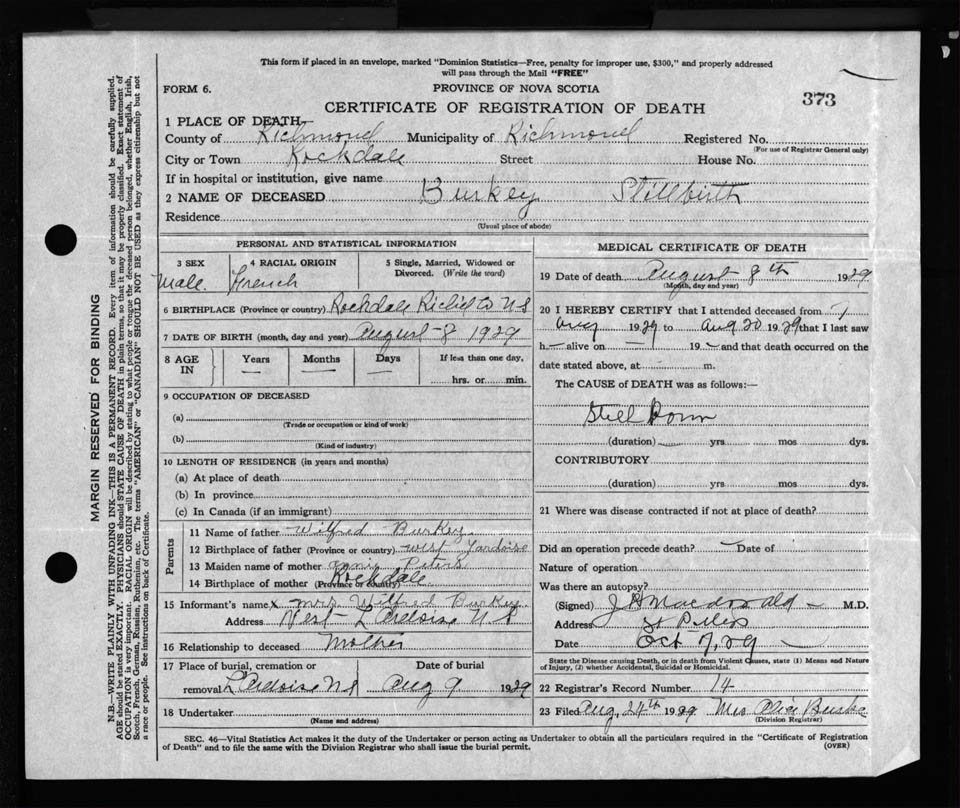 This form if placed in an envelope, marked "Dominion Statistics—Free, penalty for improper use, $300," and properly addressed
will pass through the Mail "FREE"
FORM 6.
PROVINCE OF NOVA SCOTIA
373
CERTIFICATE OF REGISTRATION OF DEATH
1 PLACE OF DEATH
County of Richmond Municipality of Richmond Registered No.
(For use of Registrar General only)
City or Town Rockdale Street House No.
If in hospital or institution, give name
2 NAME OF DECEASED Burkey Stillbirth
Residence
(Usual place of abode)
PERSONAL AND STATISTICAL INFORMATION
3 SEX 4 RACIAL ORIGIN 5 Single, Married, Widowed or
Divorced. (Write the word)
Male. French
6 BIRTHPLACE (Province or country) Rockdale Richd Co N S
7 DATE OF BIRTH (month, day and year) August 8 1929
8 AGE IN Years Months Days If less than one day,
— — — hrs. or min.
9 OCCUPATION OF DECEASED
(a)
(Trade or occupation or kind of work)
(b)
(Kind of industry)
10 LENGTH OF RESIDENCE (in years and months)
(a) At place of death
(b) In province
(c) In Canada (if an immigrant)
Parents
11 Name of father Wilfred Burkey
12 Birthplace of father (Province or country) West
13 Maiden name of mother Annie Peters
14 Birthplace of mother (Province or country) Rockdale
15 Informant's name X Mrs Wilfred Burkey
Address West L'Ardoise N S
16 Relationship to deceased Mother
17 Place of burial, cremation or Date of burial
removal L'Ardoise N S Aug 9 1929
18 Undertaker
(Name and address)
MEDICAL CERTIFICATE OF DEATH
19 Date of death August 8th 1929
(Month, day and year)
20 I HEREBY CERTIFY that I attended deceased from
Aug 1929 to Aug 20 1929 that I last saw
h— alive on — 19 — and that death occurred on the
date stated above, at m.
The CAUSE of DEATH was as follows:—
Still born
(duration) yrs mos dys.
CONTRIBUTORY
(duration) yrs mos dys.
21 Where was disease contracted if not at place of death?
Did an operation precede death? Date of
Nature of operation
Was there an autopsy?
(Signed) J Macdonald M.D.
Address St Peters
Date Oct 7, 29
State the Disease causing Death, or in death from Violent Causes, state (1) Means and Nature
of Injury, (2) whether Accidental, Suicidal or Homicidal.
22 Registrar's Record Number 14
23 Filed Aug, 24th 1929 Mrs Alice Burke
(Division Registrar)
SEC. 46—Vital Statistics Act makes it the duty of the Undertaker or person acting as Undertaker to obtain all the particulars required in the "Certificate of Registration
of Death" and to file the same with the Division Registrar who shall issue the burial permit.
(OVER)
MARGIN RESERVED FOR BINDING
N.B.—WRITE PLAINLY WITH UNFADING INK—THIS IS A PERMANENT RECORD. Every item of information should be carefully supplied.
AGE should be stated EXACTLY. PHYSICIANS should STATE CAUSE OF DEATH in plain terms, so that it may be properly classified. Exact statement of
OCCUPATION is very important. RACIAL ORIGIN will be described by stating to what people or tongue the deceased person belonged, whether English, Irish,
Scotch, French, German, Russian, Ruthenian, etc. The terms "AMERICAN" or "CANADIAN" SHOULD NOT BE USED as they express citizenship but not
a race or people. See instructions on back of Certificate.